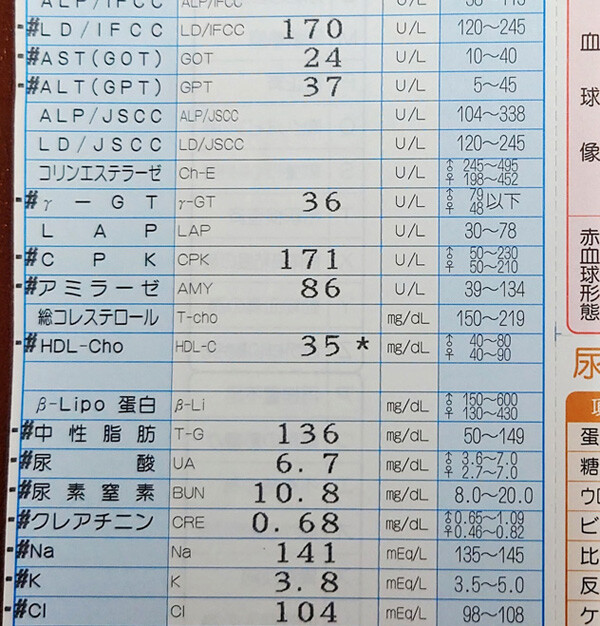 ALP/IFCC ALP/IFCC U/L
#LD/IFCC LD/IFCC 170 U/L 120～245
#AST(GOT) GOT 24 U/L 10～40
#ALT(GPT) GPT 37 U/L 5～45
ALP/JSCC ALP/JSCC U/L 104～338
LD/JSCC LD/JSCC U/L 120～245
コリンエステラーゼ Ch-E U/L ♂ 245～495 ♀ 198～452
#γ－GT γ-GT 36 U/L ♂ 79 ♀ 48 以下
LAP LAP U/L 30～78
#CPK CPK 171 U/L ♂ 50～230 ♀ 50～210
#アミラーゼ AMY 86 U/L 39～134
総コレステロール T-cho mg/dL 150～219
#HDL-Cho HDL-C 35 * mg/dL ♂ 40～80 ♀ 40～90
β-Lipo 蛋白 β-Li mg/dL ♂ 150～600 ♀ 130～430
#中性脂肪 T-G 136 mg/dL 50～149
#尿酸 UA 6.7 mg/dL ♂ 3.6～7.0 ♀ 2.7～7.0
#尿素窒素 BUN 10.8 mg/dL 8.0～20.0
#クレアチニン CRE 0.68 mg/dL ♂0.65～1.09 ♀0.46～0.82
#Na Na 141 mEq/L 135～145
#K K 3.8 mEq/L 3.5～5.0
#Cl Cl 104 mEq/L 98～108
血球像
赤血球形態
尿
項
蛋
糖
ウロ
ビ
比
反
ケ